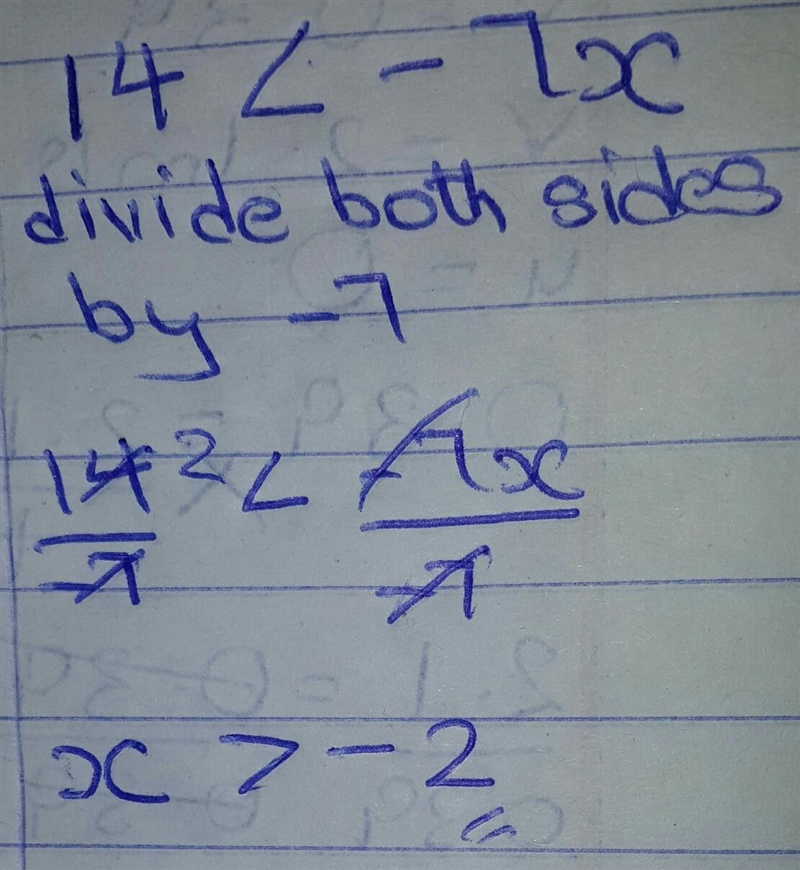 14 < - 7x
divide both sides
by -7
14 2 < -7x
-7 -7
x > -2